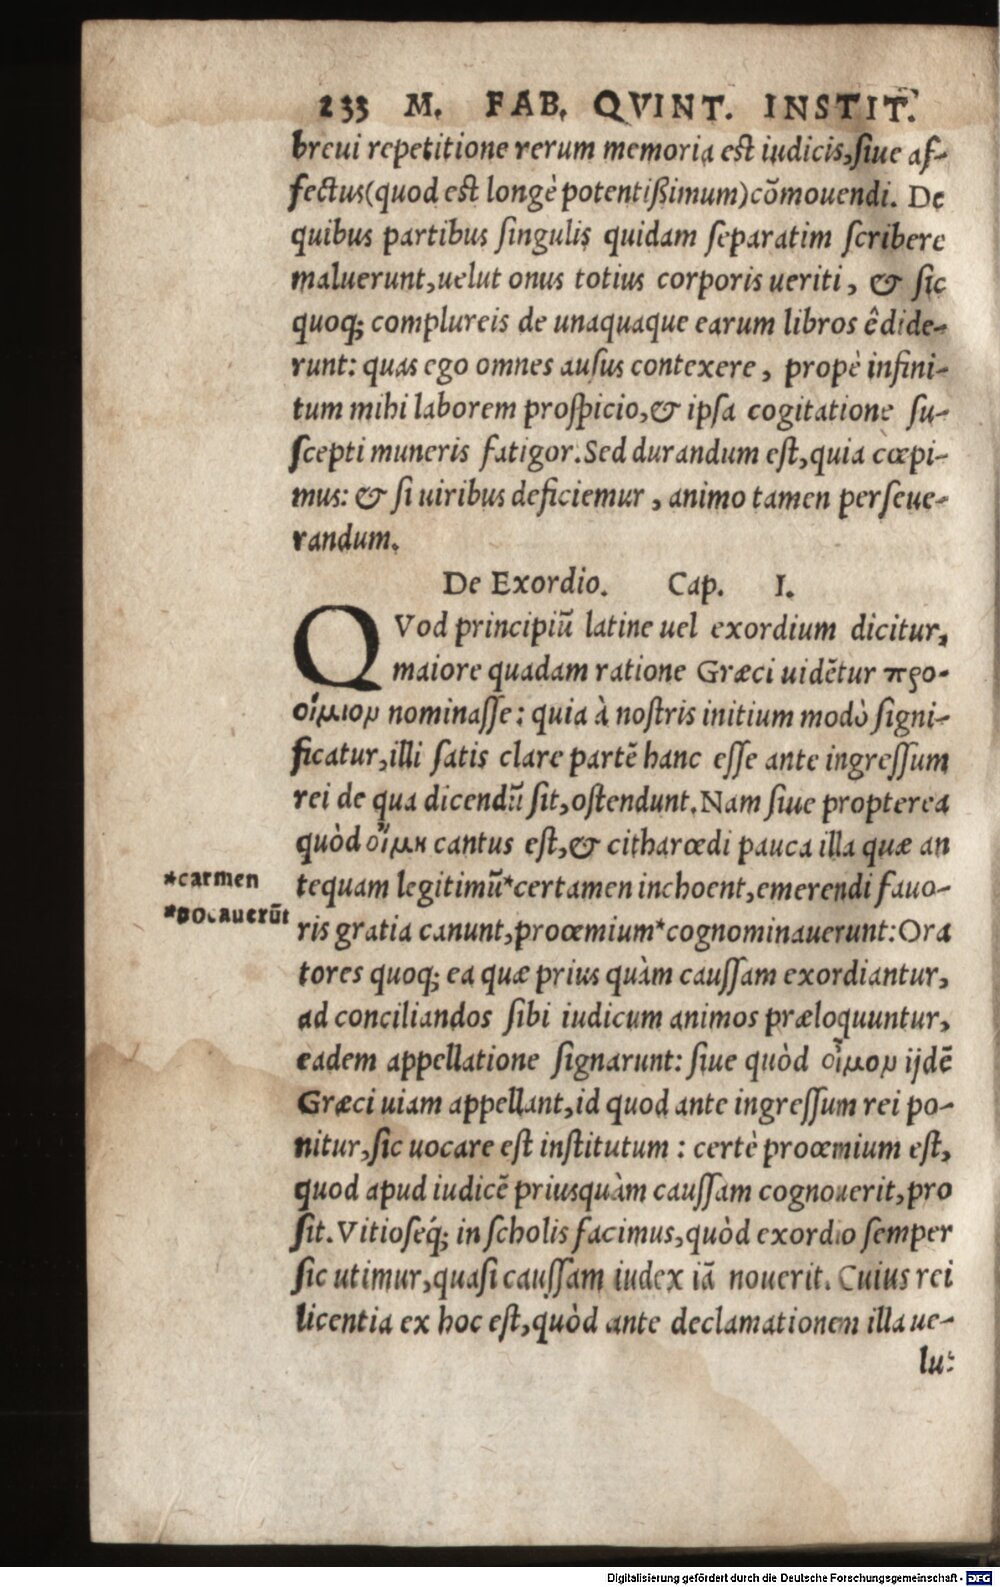 233 M. FAB. QVINT. INSTIT.
breui repetitione rerum memoria est iudicis, siue af-
fectus (quod est longè potentißimum) cõmouendi. De
quibus partibus singulis quidam separatim scribere
maluerunt, uelut onus totius corporis ueriti, & sic
quoq; complureis de unaquaque earum libros êdide-
runt: quas ego omnes ausus contexere, propè infini-
tum mihi laborem prospicio, & ipsa cogitatione su-
scepti muneris fatigor. Sed durandum est, quia cœpi-
mus: & si uiribus deficiemur, animo tamen perseue-
randum.
De Exordio. Cap. I.
QVod principiũ latine uel exordium dicitur,
maiore quadam ratione Græci uidẽtur προ-
οίμιον nominasse: quia à nostris initium modò signi-
ficatur, illi satis clare partẽ hanc esse ante ingressum
rei de qua dicendũ sit, ostendunt. Nam siue propterea
quòd οἴμη cantus est, & citharœdi pauca illa quæ an
*carmen
tequam legitimũ*certamen inchoent, emerendi fauo-
*vocauerũt
ris gratia canunt, proœmium*cognominauerunt: Ora
tores quoq; ea quæ prius quàm caussam exordiantur,
ad conciliandos sibi iudicum animos præloquuntur,
eadem appellatione signarunt: siue quòd οἶμον ijdẽ
Græci uiam appellant, id quod ante ingressum rei po-
nitur, sic uocare est institutum: certè proœmium est,
quod apud iudicẽ priusquàm caussam cognouerit, pro
sit. Vitioseq́; in scholis facimus, quòd exordio semper
sic utimur, quasi caussam iudex iã nouerit. Cuius rei
licentia ex hoc est, quòd ante declamationem illa ue-
lut
Digitalisierung gefördert durch die Deutsche Forschungsgemeinschaft - DFG